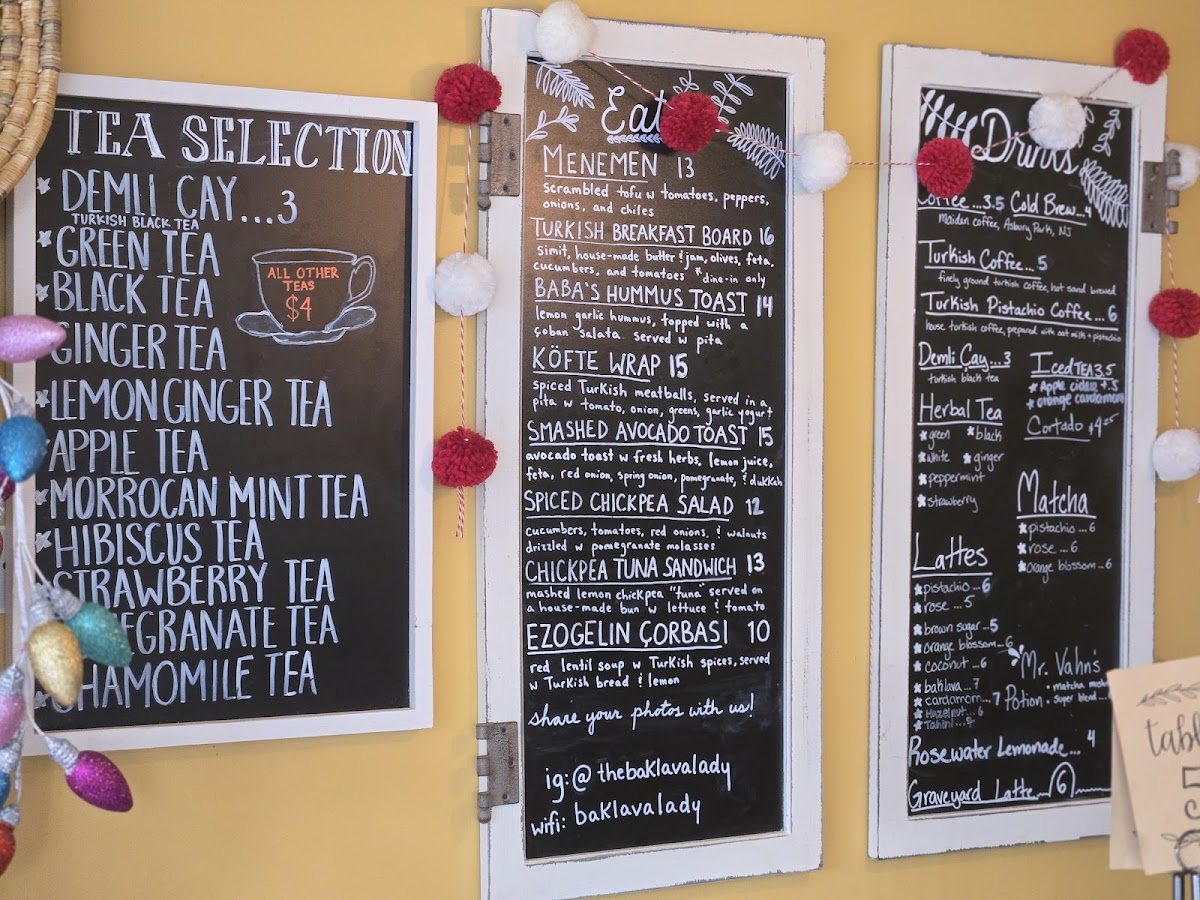 TEA SELECTION
DEMLI CAY...3
TURKISH BLACK TEA
GREEN TEA
BLACK TEA
GINGER TEA
LEMON GINGER TEA
APPLE TEA
MORROCAN MINT TEA
HIBISCUS TEA
STRAWBERRY TEA
EGRANATE TEA
CHAMOMILE TEA
ALL OTHER
TEAS
$4
Eat
MENEMEN 13
scrambled tofu w tomatoes, peppers,
onions, and chiles
TURKISH BREAKFAST BOARD 16
simit, house-made butter & jam, olives, feta,
cucumbers, and tomatoes *dine-in only
BABA'S HUMMUS TOAST 14
lemon garlic hummus, topped with a
çoban salata. served w pita
KÖFTE WRAP 15
spiced Turkish meatballs, served in a
pita w tomato, onion, greens, garlic yogurt
SMASHED AVOCADO TOAST 15
avocado toast w fresh herbs, lemon juice,
feta, red onion, spring onion, pomegranate, & dukkah
SPICED CHICKPEA SALAD 12
cucumbers, tomatoes, red onions, & walnuts
drizzled w pomegranate molasses
CHICKPEA TUNA SANDWICH 13
mashed lemon chickpea "tuna" served on
a house-made bun w lettuce & tomato
EZOGELIN ÇORBASI 10
red lentil soup w Turkish spices, served
w Turkish bread & lemon
share your photos with us!
ig:@thebaklavalady
wifi: baklavalady
Drinks
Coffee...3.5 Cold Brew...4
maiden coffee, Asbury Park, NJ
Turkish Coffee... 5
finely ground turkish coffee, hot sand brewed
Turkish Pistachio Coffee... 6
house turkish coffee, prepared with oat milk + pistachio
Demli Çay...3
turkish black tea
Herbal Tea
green black
white ginger
peppermint
strawberry
Iced TEA 3.5
Apple cider +.5
orange cardamom
Cortado $4.25
Matcha
pistachio ... 6
rose ... 6
orange blossom ... 6
Lattes
pistachio ... 6
rose ... 5
brown sugar ... 5
orange blossom ... 6
coconut ... 6
baklava ... 7
cardamom ... 7
Hazelnut ... 6
Tahini ...
Mr. Vahn's
Potion
matcha
super blend
Rosewater Lemonade... 4
Graveyard Latte 6
tabl